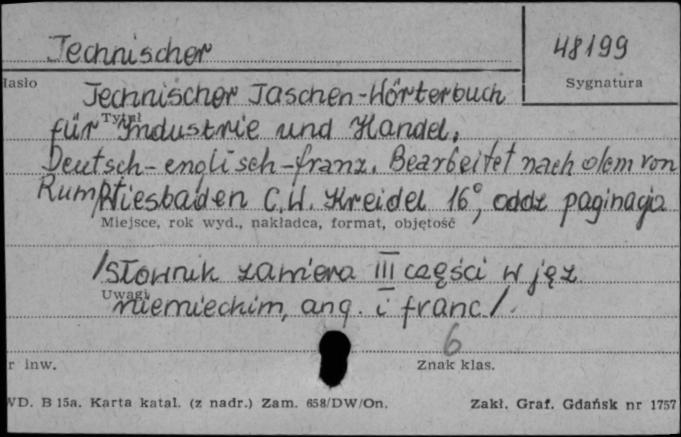 Technischer
48199
Hasło
Sygnatura
Technischer Taschen-Wörterbuch
Tytuł
für Industrie und Handel,
Deutsch-englisch-franz. Bearbeitet nach dem von
Rumpf Wiesbaden C.W. Kreidel 16°, oddz paginacja
Miejsce, rok wyd., nakładca, format, objętość
/słownik zawiera III części w jęz.
Uwagi
niemieckim, ang. i franc./.
6
r inw.
Znak klas.
WD. B 15a. Karta katal. (z nadr.) Zam. 658/DW/On.
Zakł. Graf. Gdańsk nr 1757